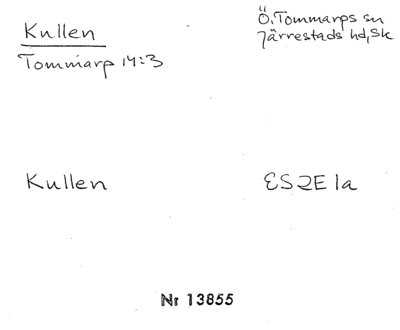 Kullen
Ö. Tommarps sn
Järrestads hd, Sk
Tommarp 14:3
Kullen
ES2E1a
Nr 13855